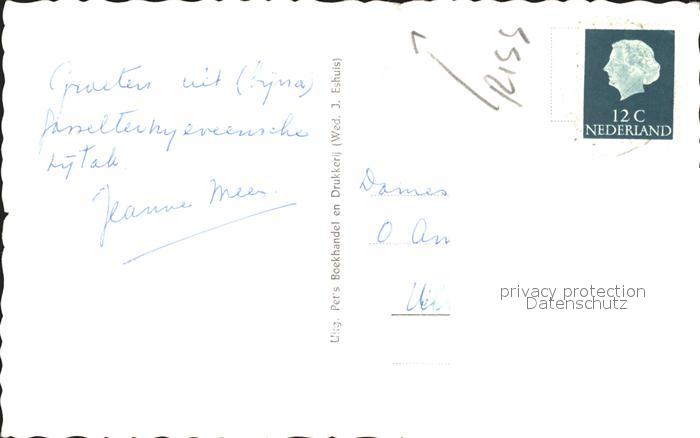 Groeten uit (bijna)
Gasselternyeveensche
Jeanne Mees.
Uitg. Pet's Boekhandel en Drukkerij (Wed. J. Eshuis)
12 C
NEDERLAND
Dames
O An
privacy protection
Datenschutz